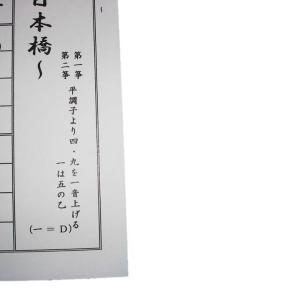 日本橋〜
第一箏
第二箏
平調子より四・九を一音上げる
一は五の乙
(一 = D)